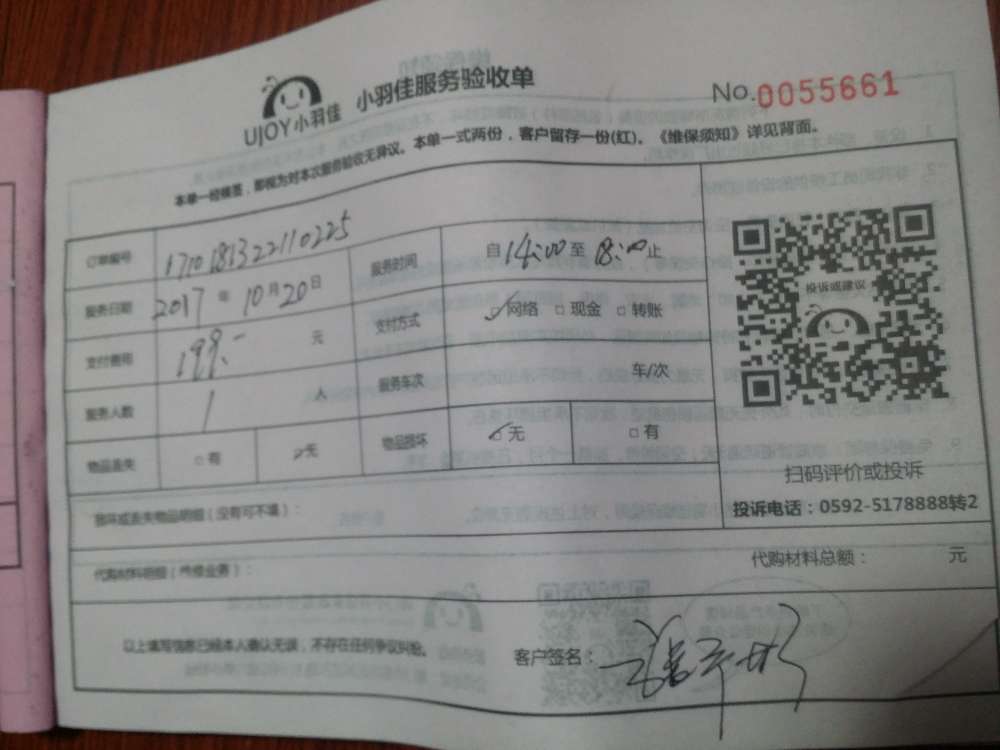 UJOY小羽佳 小羽佳服务验收单
No.0055661
本单一经填签，即视为对本次服务验收无异议。本单一式两份，客户留存一份(红)。《维保须知》详见背面。
订单编号 1710181322110225 服务时间 自14:00至18:00止
服务日期 2017年10月20日 支付方式 ☑网络 □现金 □转账
支付费用 199.- 元 服务车次 车/次
服务人数 1 人
物品丢失 □有 ☑无 物品损坏 ☑无 □有
投诉或建议
扫码评价或投诉
投诉电话：0592-5178888转2
损坏或丢失物品明细（没有可不填）：
代购材料明细（维修业务）： 代购材料总额： 元
以上填写信息已经本人确认无误，不存在任何争议纠纷。 客户签名：